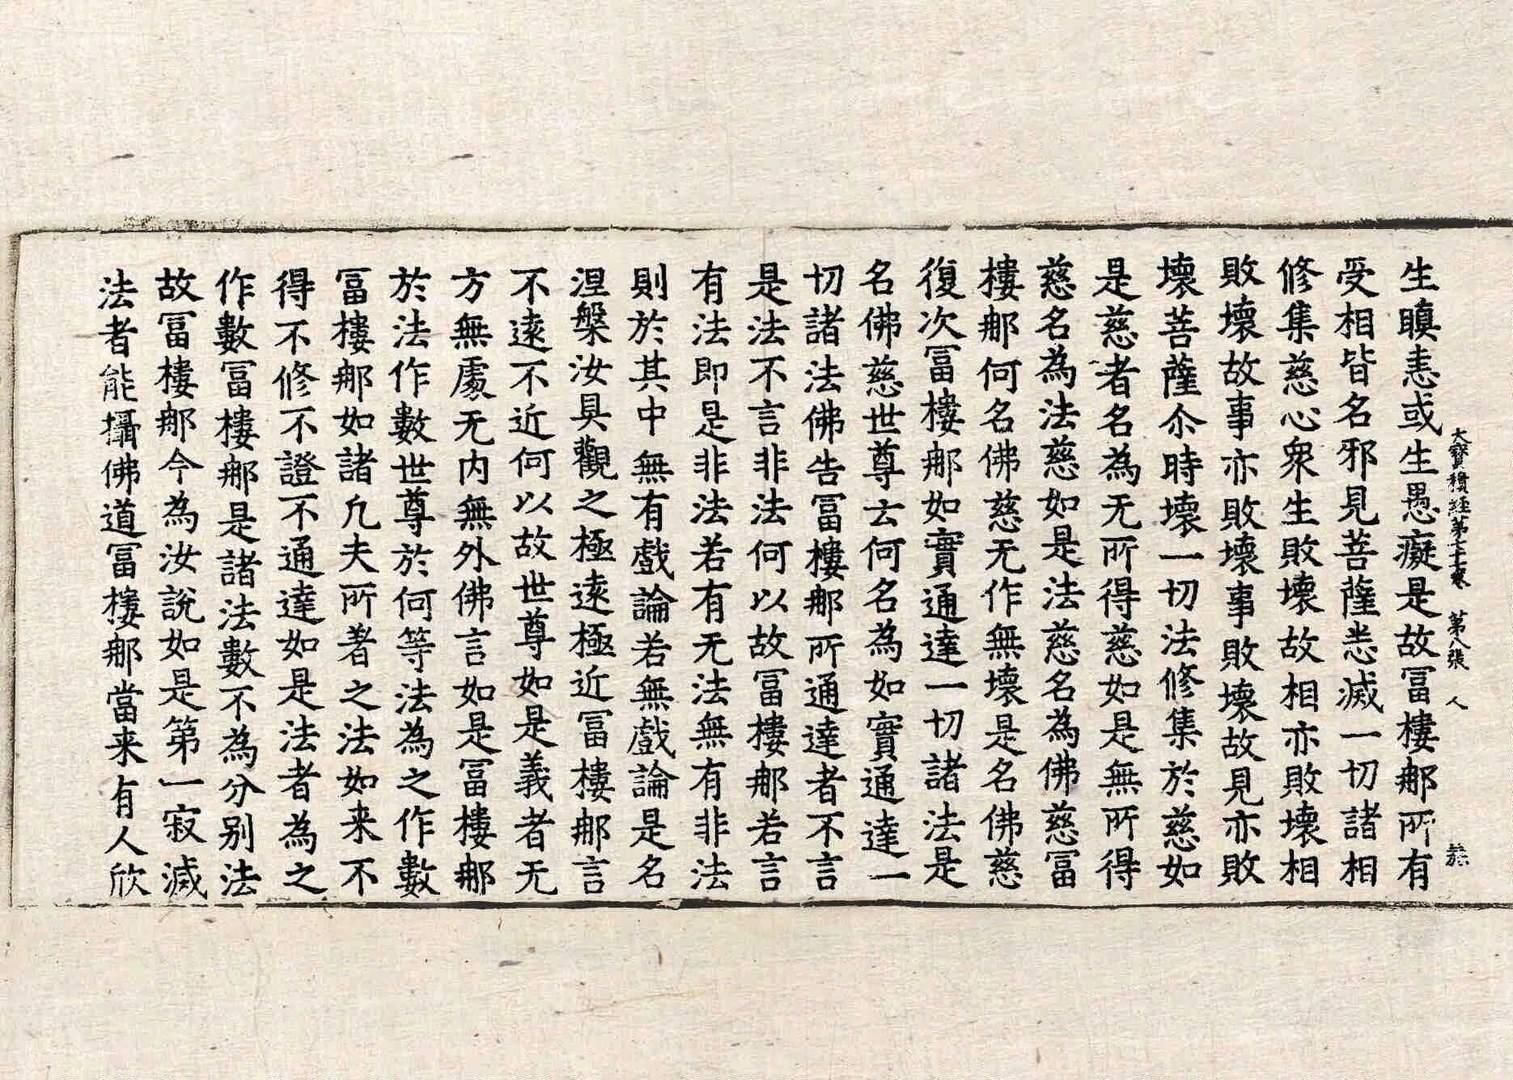 生瞋恚或生愚癡是故冨樓那所有
大寳積經第七十七卷　第八張　人
受相皆名邪見菩薩悉滅一切諸相
修集慈心衆生敗壞故相亦敗壞相
敗壞故事亦敗壞事敗壞故見亦敗
壞菩薩尒時壞一切法修集於慈如
是慈者名為无所得慈如是無所得
慈名為法慈如是法慈名為佛慈冨
樓那何名佛慈无作無壞是名佛慈
復次冨樓那如實通達一切諸法是
名佛慈世尊云何名為如實通達一
切諸法佛告冨樓那所通達者不言
是法不言非法何以故冨樓那若言
有法即是非法若有无法無有非法
則於其中無有戲論若無戲論是名
涅槃汝具觀之極遠極近冨樓那言
不遠不近何以故世尊如是義者无
方無處无内無外佛言如是冨樓那
於法作數世尊於何等法為之作數
冨樓那如諸凡夫所著之法如来不
得不修不證不通達如是法者為之
作數冨樓那是諸法數不為分别法
故冨樓那今為汝說如是第一寂滅
法者能攝佛道冨樓那當来有人欣